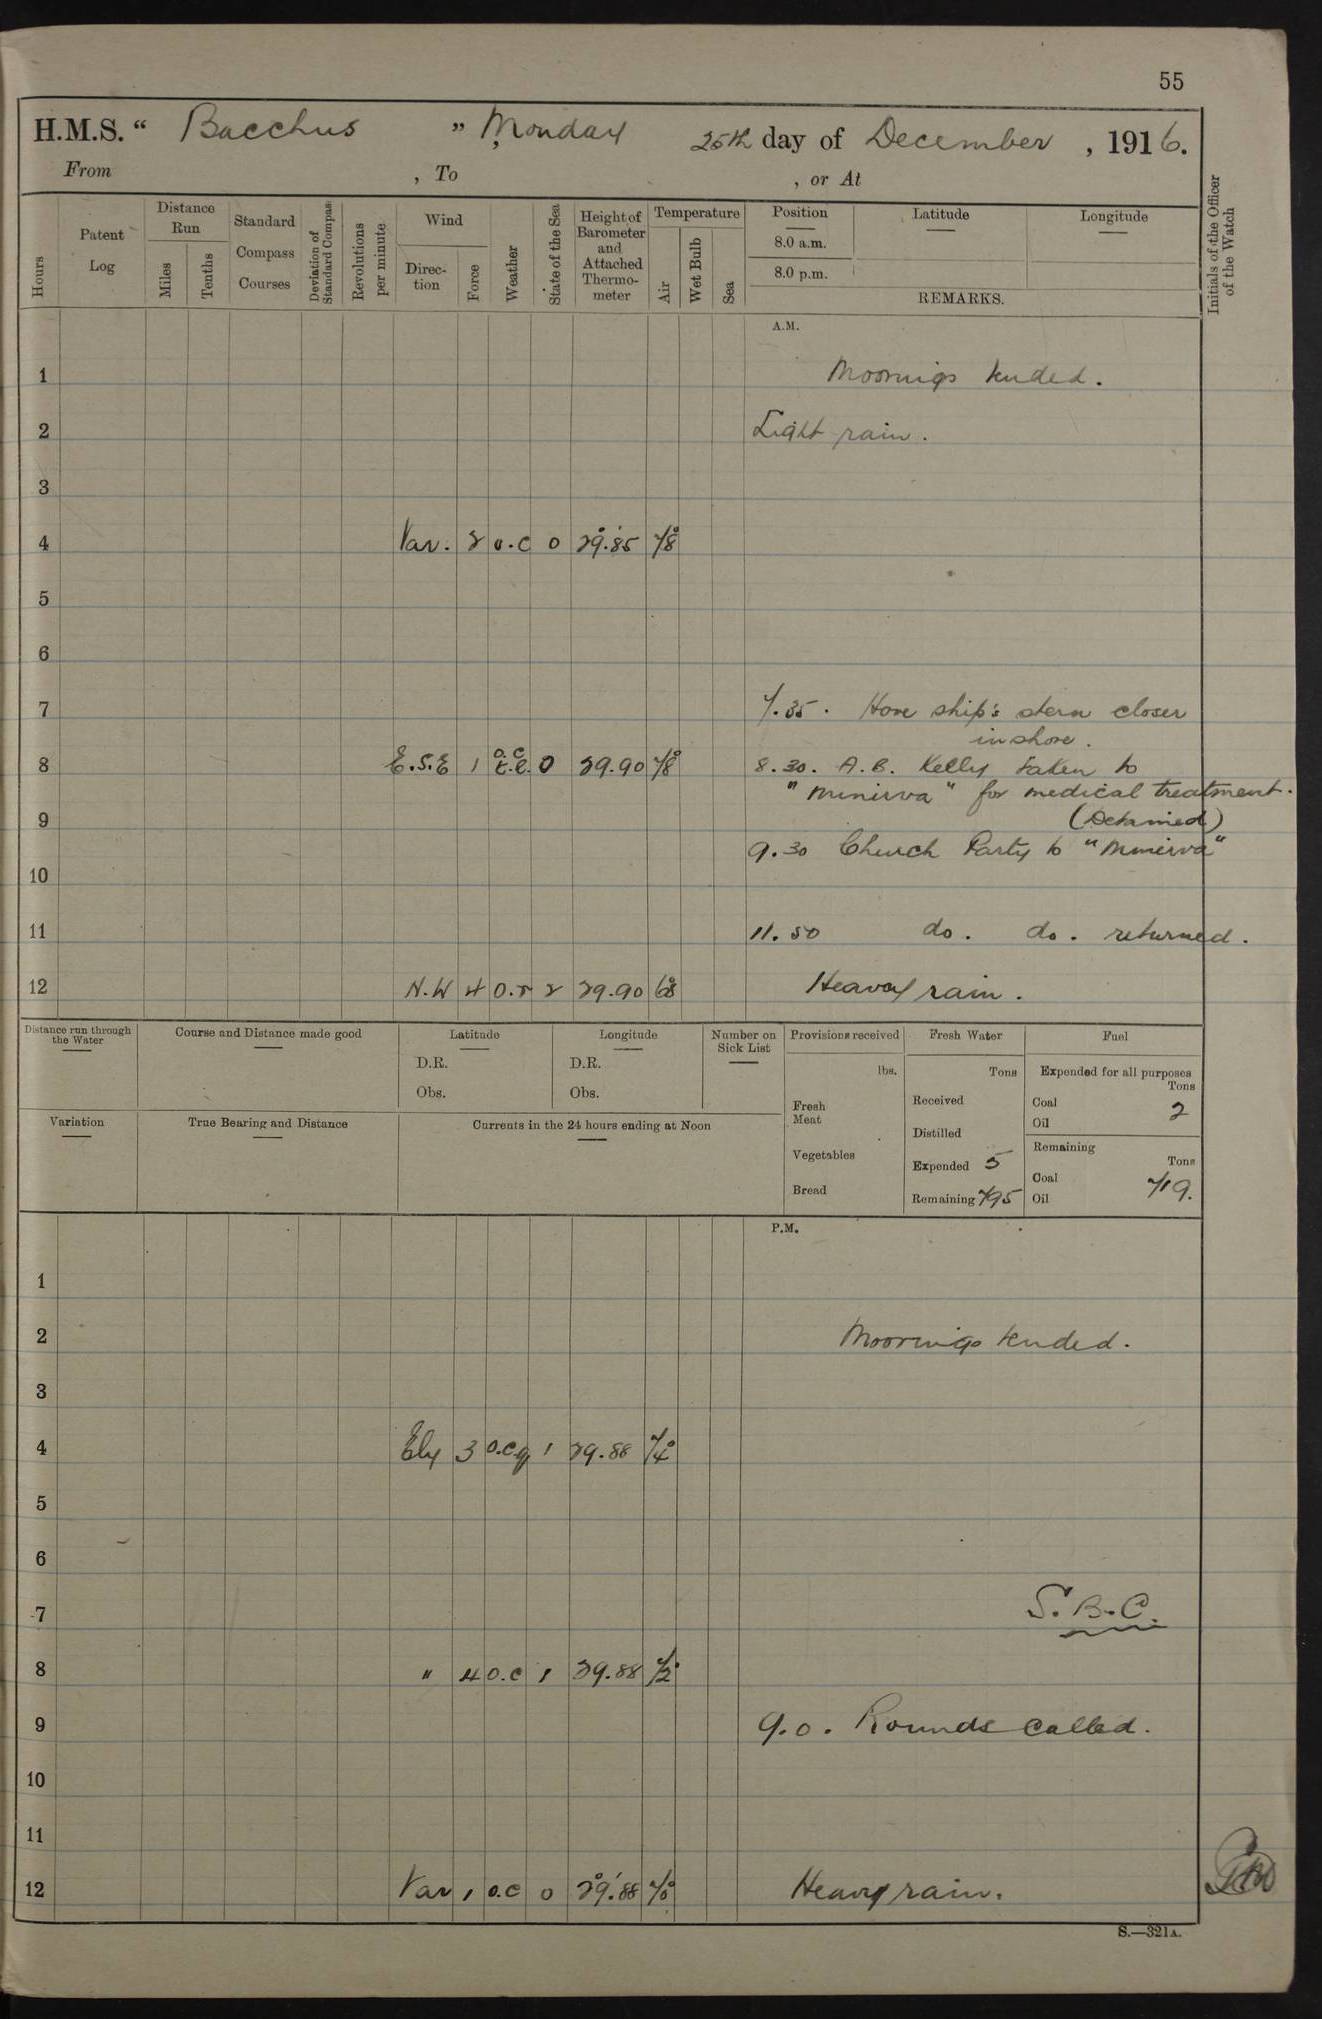 55
H.M.S. “ Bacchus ” Monday, 25th day of December, 1916.
From , To , or At
Hours
Patent Log
Distance Run
Miles
Tenths
Standard Compass Courses
Deviation of Standard Compass
Revolutions per minute
Wind
Direction
Force
Weather
State of the Sea
Height of Barometer and Attached Thermometer
Temperature
Air
Wet Bulb
Sea
Position
8.0 a.m.
8.0 p.m.
Latitude
Longitude
REMARKS.
Initials of the Officer of the Watch
A.M.
1 Moorings tended.
2 Light rain.
3
4 Var. 2 o.c 0 29.85 78
5
6
7 7.35. Hove ship's stern closer
inshore.
8 E.S.E 1 o.c 0 29.90 78 8.30. A.B. Kelly taken to
"Minerva" for medical treatment.
9 (Detained)
9.30 Church Party to "Minerva"
10
11 11.50 do. do. returned.
12 N.W 4 o.r 2 29.90 68 Heavy rain.
Distance run through the Water
Course and Distance made good
Latitude
D.R.
Obs.
Longitude
D.R.
Obs.
Number on Sick List
Provisions received
lbs.
Fresh Meat
Vegetables
Bread
Fresh Water
Tons
Received
Distilled
Expended 5
Remaining 795
Fuel
Expended for all purposes
Tons
Coal 2
Oil
Remaining
Tons
Coal 719.
Oil
Variation
True Bearing and Distance
Currents in the 24 hours ending at Noon
P.M.
1
2 Moorings tended.
3
4 Ely 3 o.c.q 1 29.88 74
5
6
7 S.B.C.
8 " 4 o.c 1 29.88 72
9 9.0. Rounds called.
10
11
12 Var 1 o.c 0 29.88 70 Heavy rain.
S.—321A.